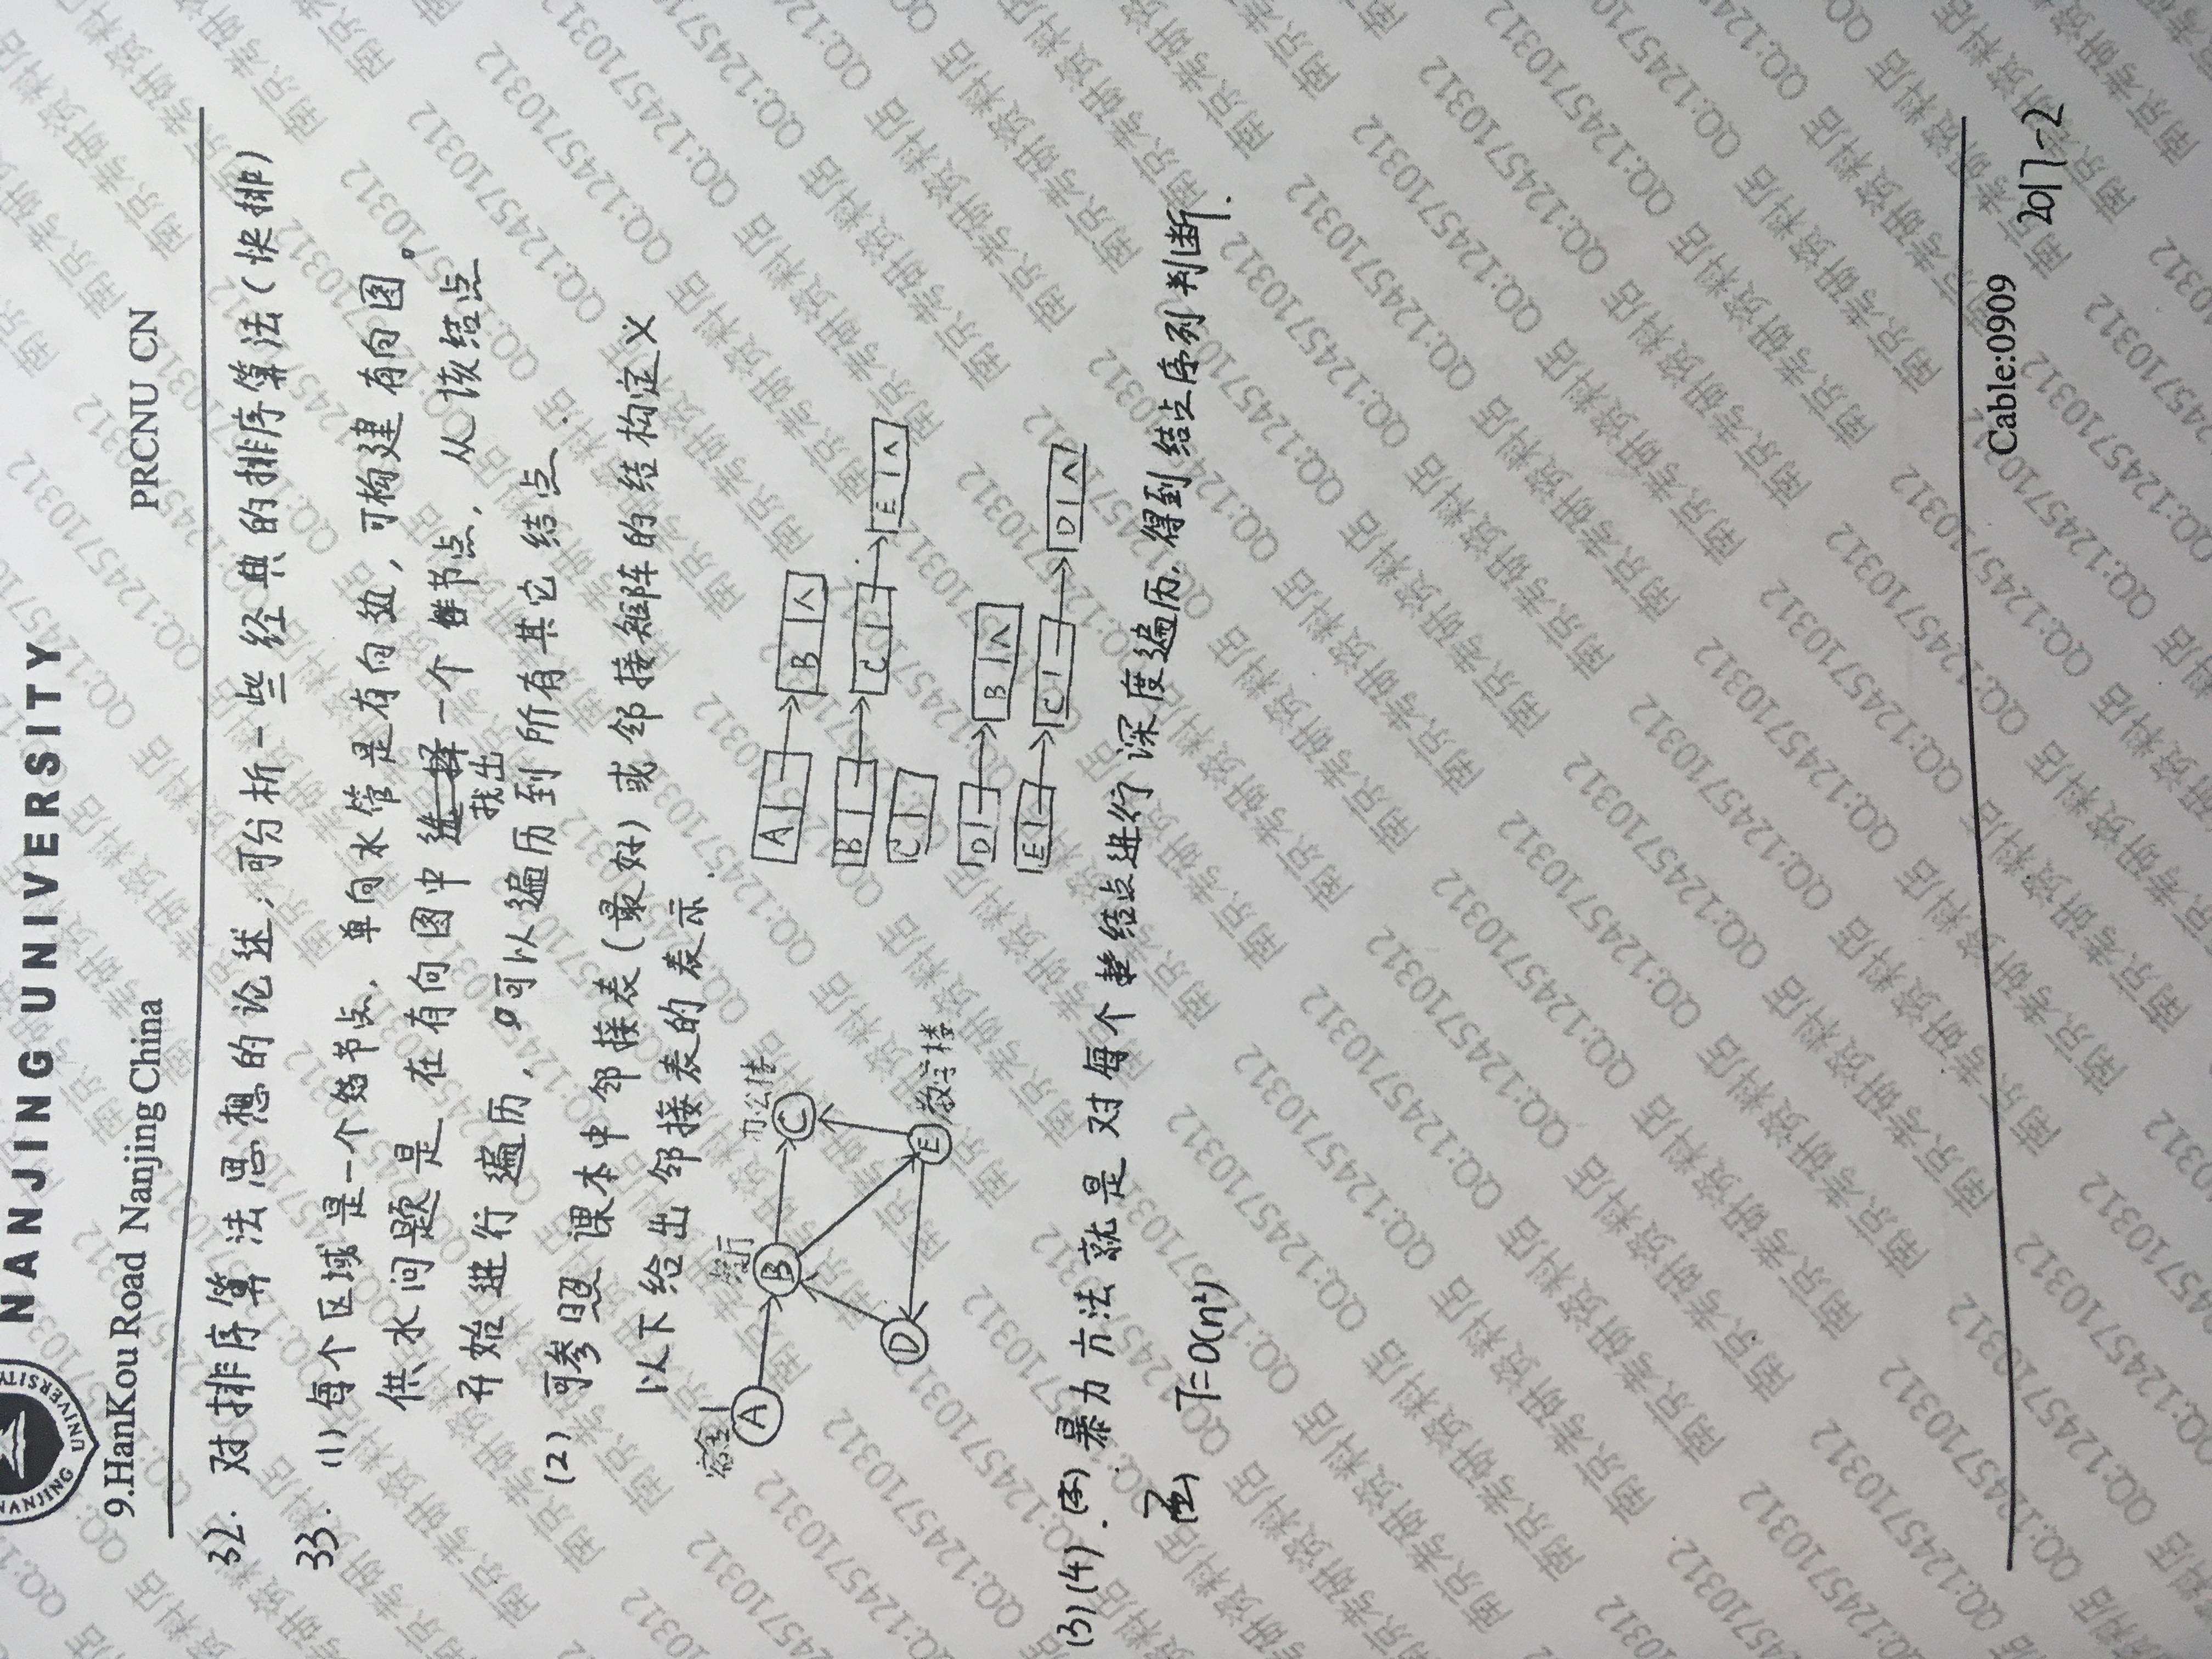 NANJING UNIVERSITY
NANJING UNIVERSITY
9.HanKou Road Nanjing China
PRCNU CN
32. 对排序算法思想的论述,可分析一些经典的排序算法(快排)
33. (1) 每个区域是一个节点, 单向水管是有向边, 可构建有向图。
供水问题是 在有向图中选择一个节点, 从该结点
找出
开始进行遍历, 可以遍历到所有其它结点.
(2) 可参照课本中邻接表(最好)或邻接矩阵的结构定义
以下给出邻接表的表示.
宿舍1
A
餐厅
B
办公楼
C
D
E
教学楼
A
B ∧
B
C
E ∧
C
D
B ∧
E
C
D ∧
(3)(4). 暴力方法就是对每个结点进行深度遍历, 得到结点序列判断.
T=O(n²)
Cable:0909
2017-2
南京考研资料店 QQ:1245710312